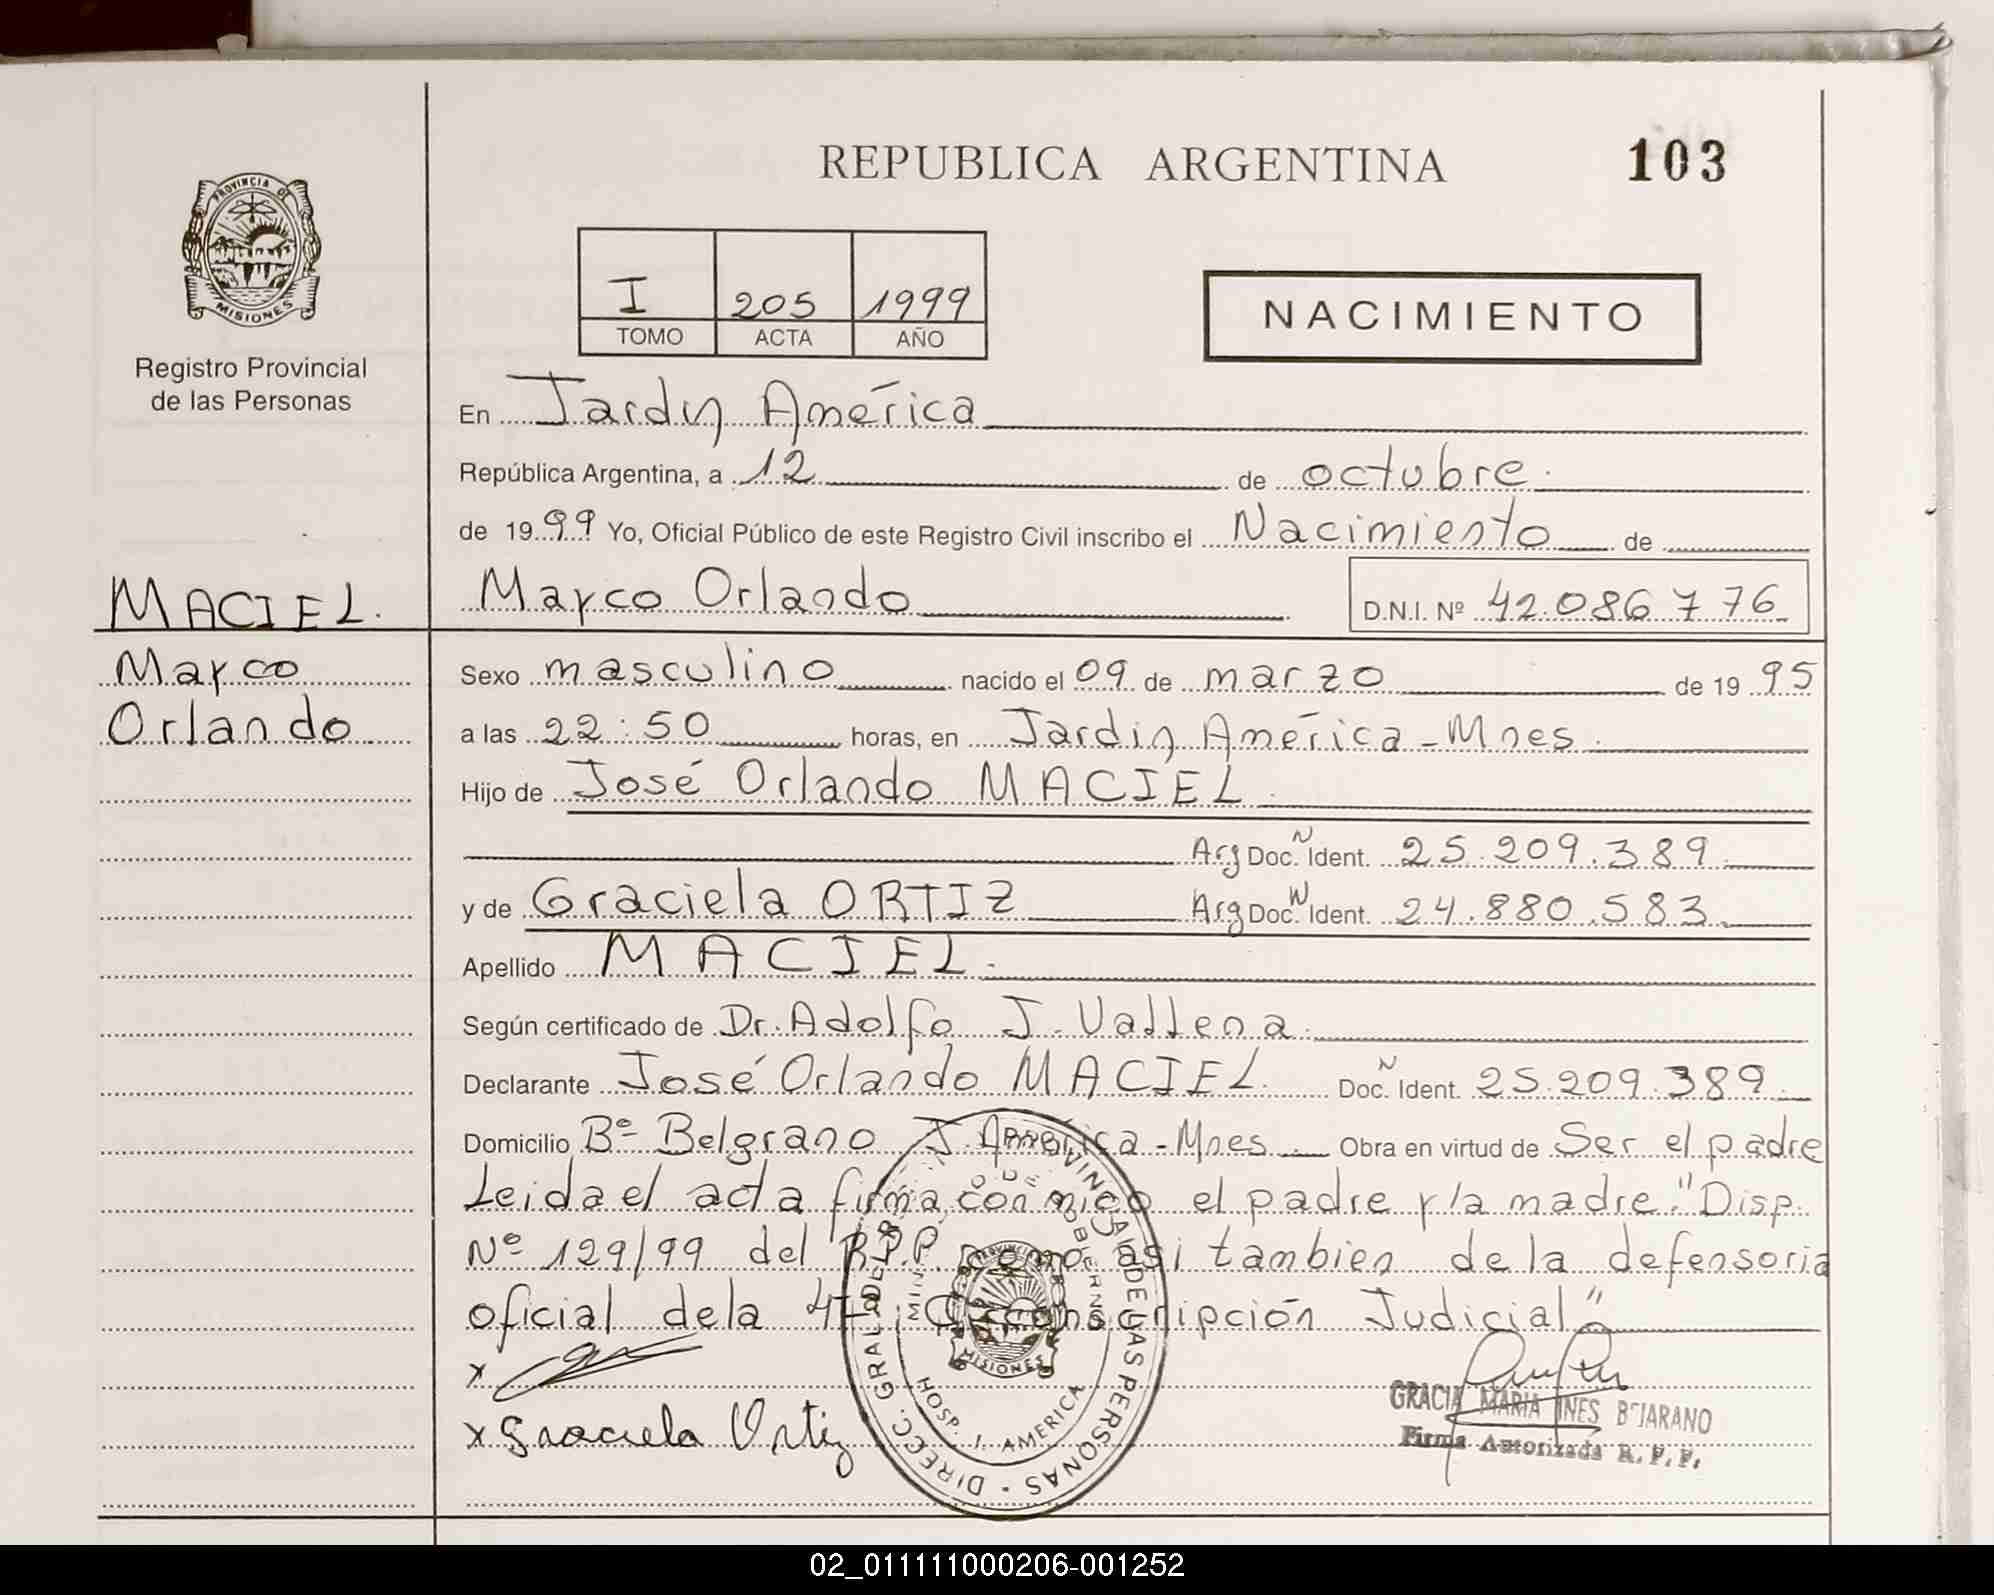 REPUBLICA ARGENTINA
103
PROVINCIA DE
MISIONES
Registro Provincial
de las Personas
I 205 1999
TOMO ACTA AÑO
NACIMIENTO
En Jardin América
República Argentina, a 12 de octubre
de 1999 Yo, Oficial Público de este Registro Civil inscribo el Nacimiento de
MACIEL. Marco Orlando D.N.I. Nº 42.086.776
Marco
Orlando
Sexo masculino nacido el 09 de marzo de 1995
a las 22:50 horas, en Jardin América - Mnes.
Hijo de José Orlando MACIEL
Arg Doc. N Ident. 25.209.389
y de Graciela ORTIZ Arg Doc. N Ident. 24.880.583
Apellido MACIEL.
Según certificado de Dr. Adolfo J.
Declarante José Orlando MACIEL Doc. N Ident. 25.209.389
Domicilio Bº Belgrano J. América - Mnes Obra en virtud de Ser el padre
Leida el acta firma con migo el padre y la madre. "Disp.
Nº 129/99 del R.P.P. como asi tambien de la defensoria
oficial dela Circonscripción Judicial"
x
x Graciela Ortiz
DIRECC. GRAL. DEL R. PROVINCIAL DE LAS PERSONAS
HOSP. J. AMERICA
MISIONES
GRACIA MARIA INES BEJARANO
Firma Autorizada R. P. P.
02_011111000206-001252